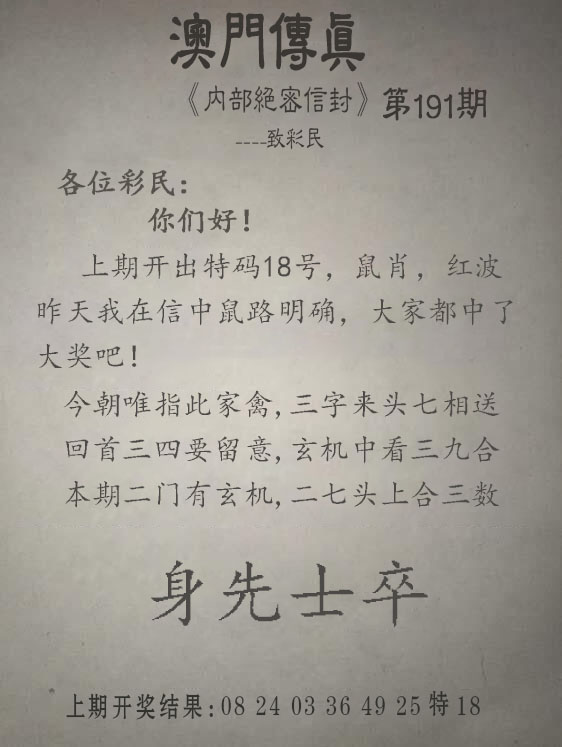 澳門傳眞
《内部絕密信封》第191期
----致彩民
各位彩民：
你们好！
上期开出特码18号，鼠肖，红波
昨天我在信中鼠路明确，大家都中了
大奖吧！
今朝唯指此家禽,三字来头七相送
回首三四要留意,玄机中看三九合
本期二门有玄机,二七头上合三数
身先士卒
上期开奖结果:08 24 03 36 49 25 特 18